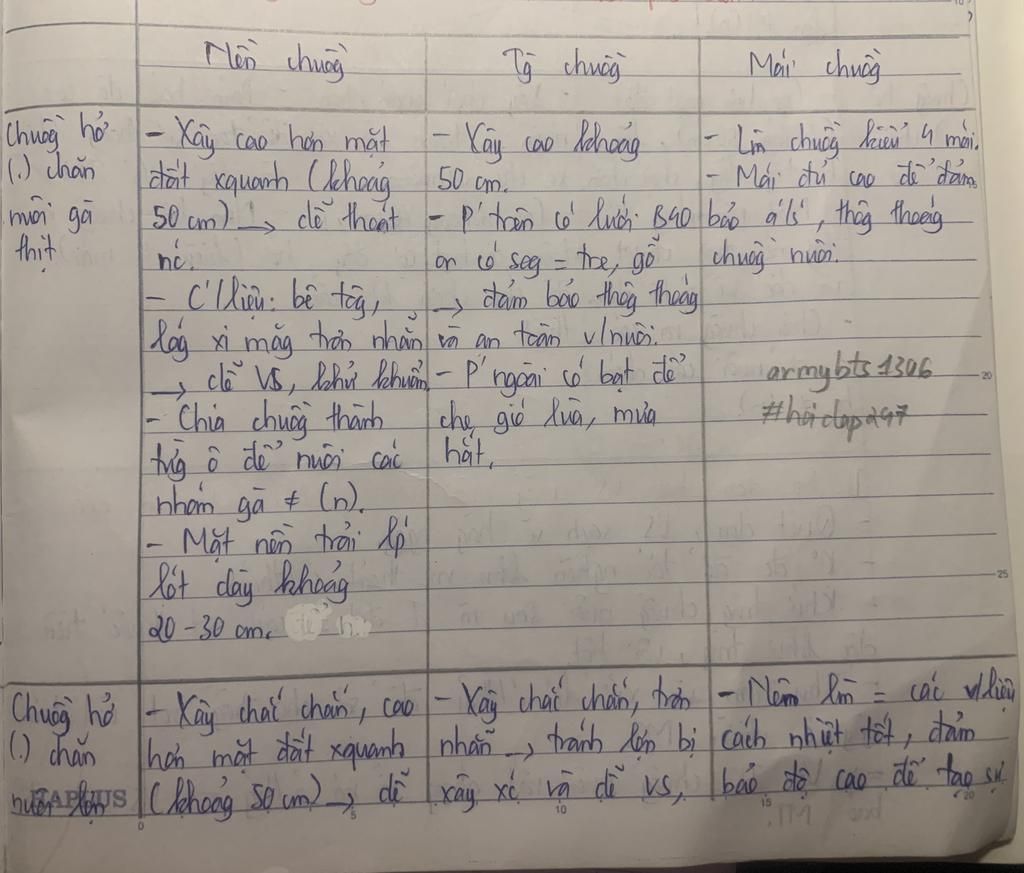 Nền chuồg
Tg chuồg
Mái chuồg
Chuồg hở
(.) chăn
nuôi gà
thịt
- Xây cao hơn mặt
đất xquanh (khoảg
50 cm) → dễ thoát
nc.
- C'/liệu: bê tôg,
lág xi măg trơn nhẵn
→ dễ VS, khử khuẩn
- Chia chuồg thành
từg ô để nuôi các
nhóm gà ≠ (n).
- Mặt nền trải lp
lót dày khoảg
20 - 30 cm.
- Xây cao khoảg
50 cm.
- P' trên có lưới B40
or có seg = tre, gỗ
→ đảm bảo thôg thoág
và an toàn v/nuôi.
- P' ngoài có bạt để
che gió lùa, mưa
hắt.
- Lm chuồg kiểu 4 mái.
- Mái đủ cao để đảm
bảo a's', thôg thoág
chuồg nuôi.
armybts1306
#hoidap247
Chuồg hở
(.) chăn
nuôi lợn
- Xây chắc chắn, cao
hơn mặt đất xquanh
(khoảg 50 cm) → dễ
- Xây chắc chắn, trơn
nhẵn → tránh lợn bị
xây xc và dễ VS,
- Nên lm = các v/liệu
cách nhiệt tốt, đảm
bảo độ cao để tạo sự
HAPLUS
0 5 10 15 20
20
25